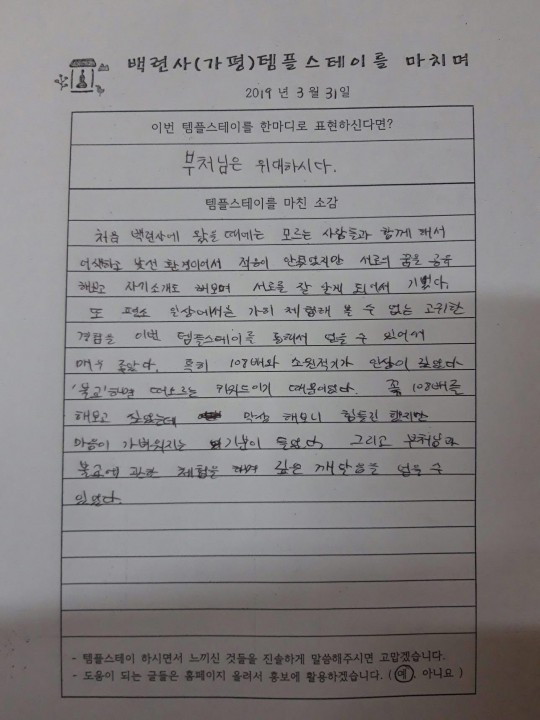 백련사(가평)템플스테이를 마치며
2019 년 3 월 31일
이번 템플스테이를 한마디로 표현하신다면?
부처님은 위대하시다.
템플스테이를 마친 소감
처음 백련사에 왔을 때에는 모르는 사람들과 함께 해서
어색하고 낯선 환경이어서 적응이 안됐었지만 서로의 꿈을 공유
해보고 자기소개도 해보며 서로를 잘 알게 되어서 기뻤다.
또 평소 일상에서는 가히 체험해 볼 수 없는 고귀한
경험을 이번 템플스테이를 통해서 얻을 수 있어서
매우 좋았다. 특히 108배와 소원적기가 인상이 깊었다
'불교'하면 떠오르는 키워드이기 때문이었다. 꼭 108배를
해보고 싶었는데 막상 해보니 힘들긴 했지만
마음이 가벼워지는 기분이 들었다 그리고 부처님과
불교에 관한 체험을 하며 깊은 깨달음을 얻을 수
있었다.
- 템플스테이 하시면서 느끼신 것들을 진솔하게 말씀해주시면 고맙겠습니다.
- 도움이 되는 글들은 홈페이지 올려서 홍보에 활용하겠습니다. ( 예, 아니요 )